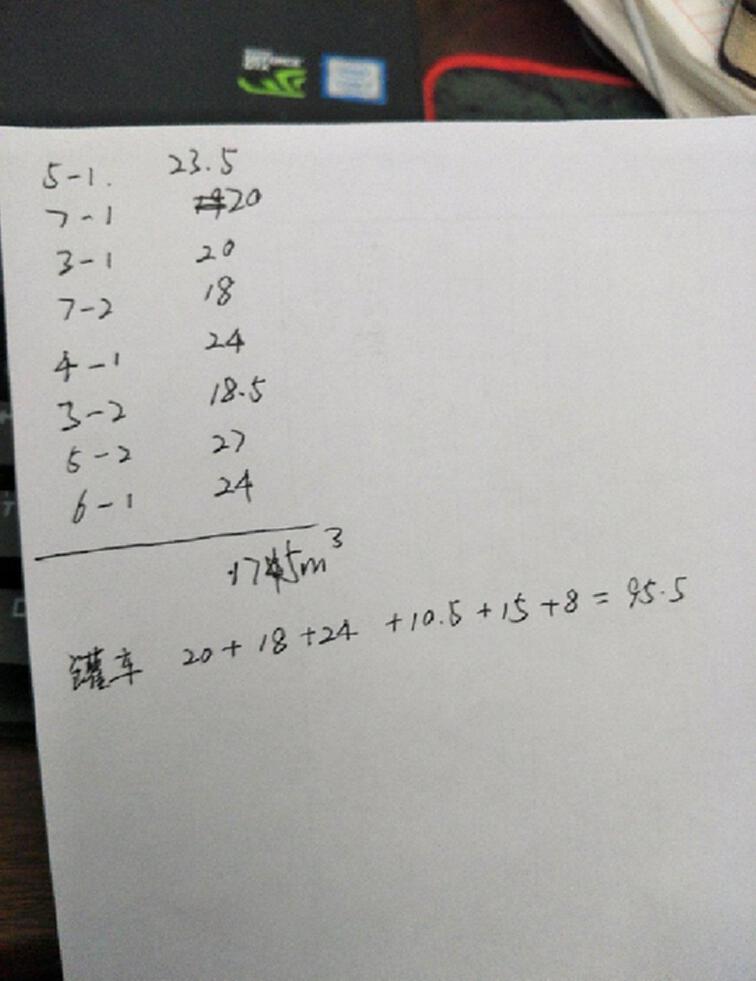 5-1. 23.5
7-1 20
3-1 20
7-2 18
4-1 24
3-2 18.5
5-2 27
6-1 24
175m³
罐车 20+18+24+10.5+15+8=95.5